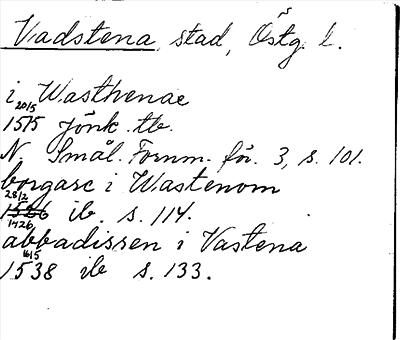 Vadstena, stad, Östg. l.
i Wasthenae
20/5
1515 Jönk. tb.
N. Smål. Fornm. för. 3, s. 101.
borgare i Wastenom
28/2
1526 ib. s. 114.
1426,
abbadissen i Vastena
16/5
1538 ib s. 133.